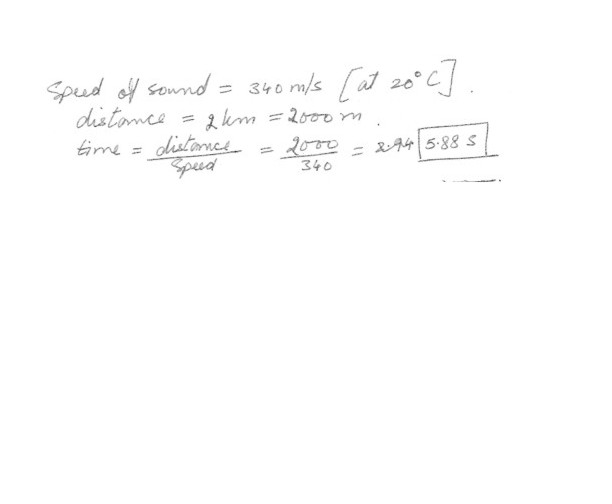 Speed of sound = 340 m/s [at 20°C].
distance = 2 km = 2000 m.
time = distance/Speed = 2000/340 = 2.94 5.88 s